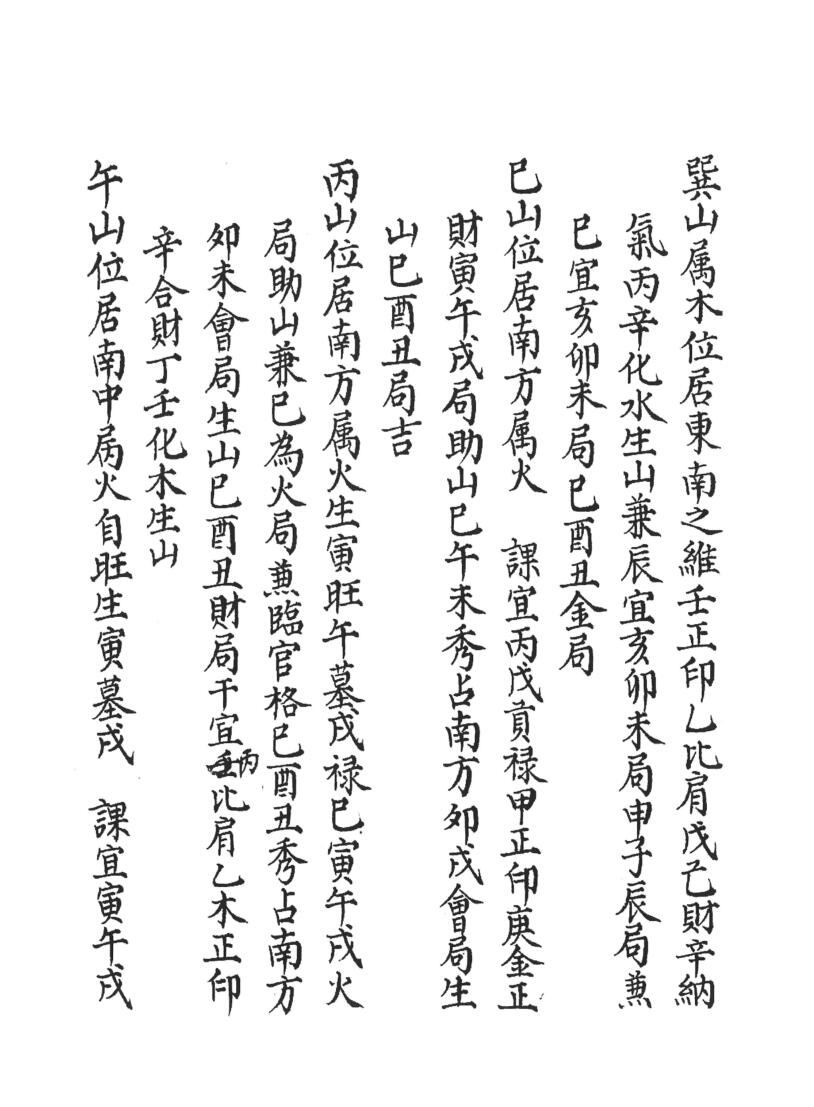 巽山属木位居東南之維壬正印乙比肩戊己財辛納
氣丙辛化水生山兼辰宜亥卯未局申子辰局兼
巳宜亥卯未局巳酉丑金局
巳山位居南方属火　課宜丙戊貢禄甲正印庚金正
財寅午戌局助山巳午未秀占南方卯戌會局生
山巳酉丑局吉
丙山位居南方属火生寅旺午墓戌禄巳寅午戌火
局助山兼巳為火局兼臨官格巳酉丑秀占南方
卯未會局生山巳酉丑財局干宜丙比肩乙木正印
辛合財丁壬化木生山
午山位居南中属火自旺生寅墓戌　課宜寅午戌